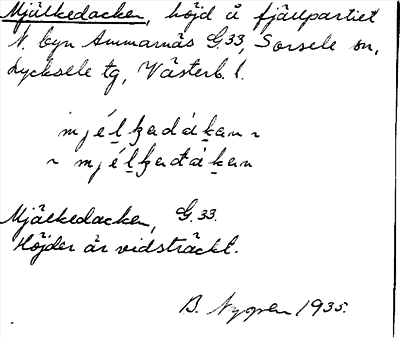 Mjälkedacken, höjd å fjällpartiet
N. byn Ammarnäs G.33, Sorsele sn,
Lycksele tg, Västerb. l.
mjélkadákan ~
~ mjélkadákan
Mjälkedacken, G. 33.
Höjder är vidsträckt.
B. Nygren 1935.